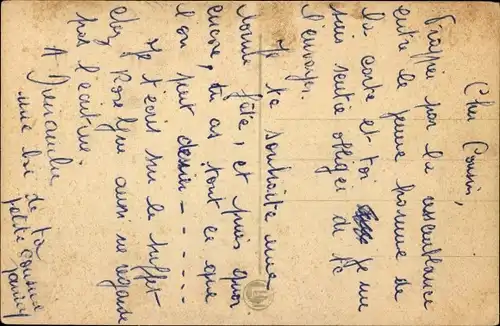 Cher Cousin,
Frappée par la ressemblance
entre le jeune homme de
la carte et toi je me
suis sentie obligée de te
l'envoyer.
Je te souhaite une
bonne fête, et puis quoi
encore, tu as tout ce que
l'on peut désirer - - - - -
Je t'écris sur le buffet
chez Rose que aussi ne regarde
pas l'écriture.
A Dimanche
une bise de ta
petite cousine